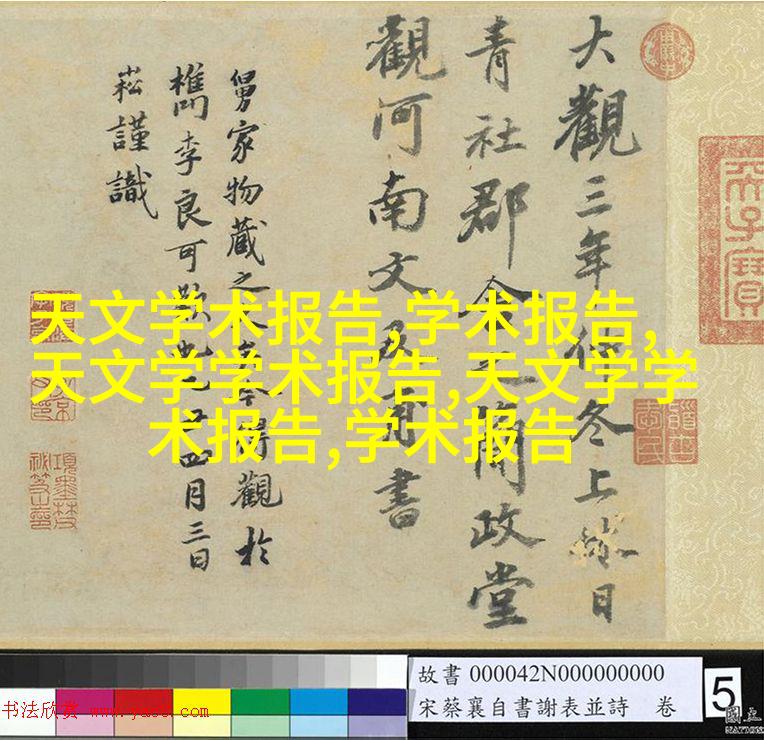 大觀三年仲冬上日
青社郡舍之簡政堂
觀河南文及甫書
舅家物藏之觀於
檇李良可也四月三日
崧謹識
天文学术报告,学术报告,
天文学学术报告,天文学学
术报告,学术报告
故書 000042N000000000
宋蔡襄自書謝表並詩 卷
5
國立
书法欣赏